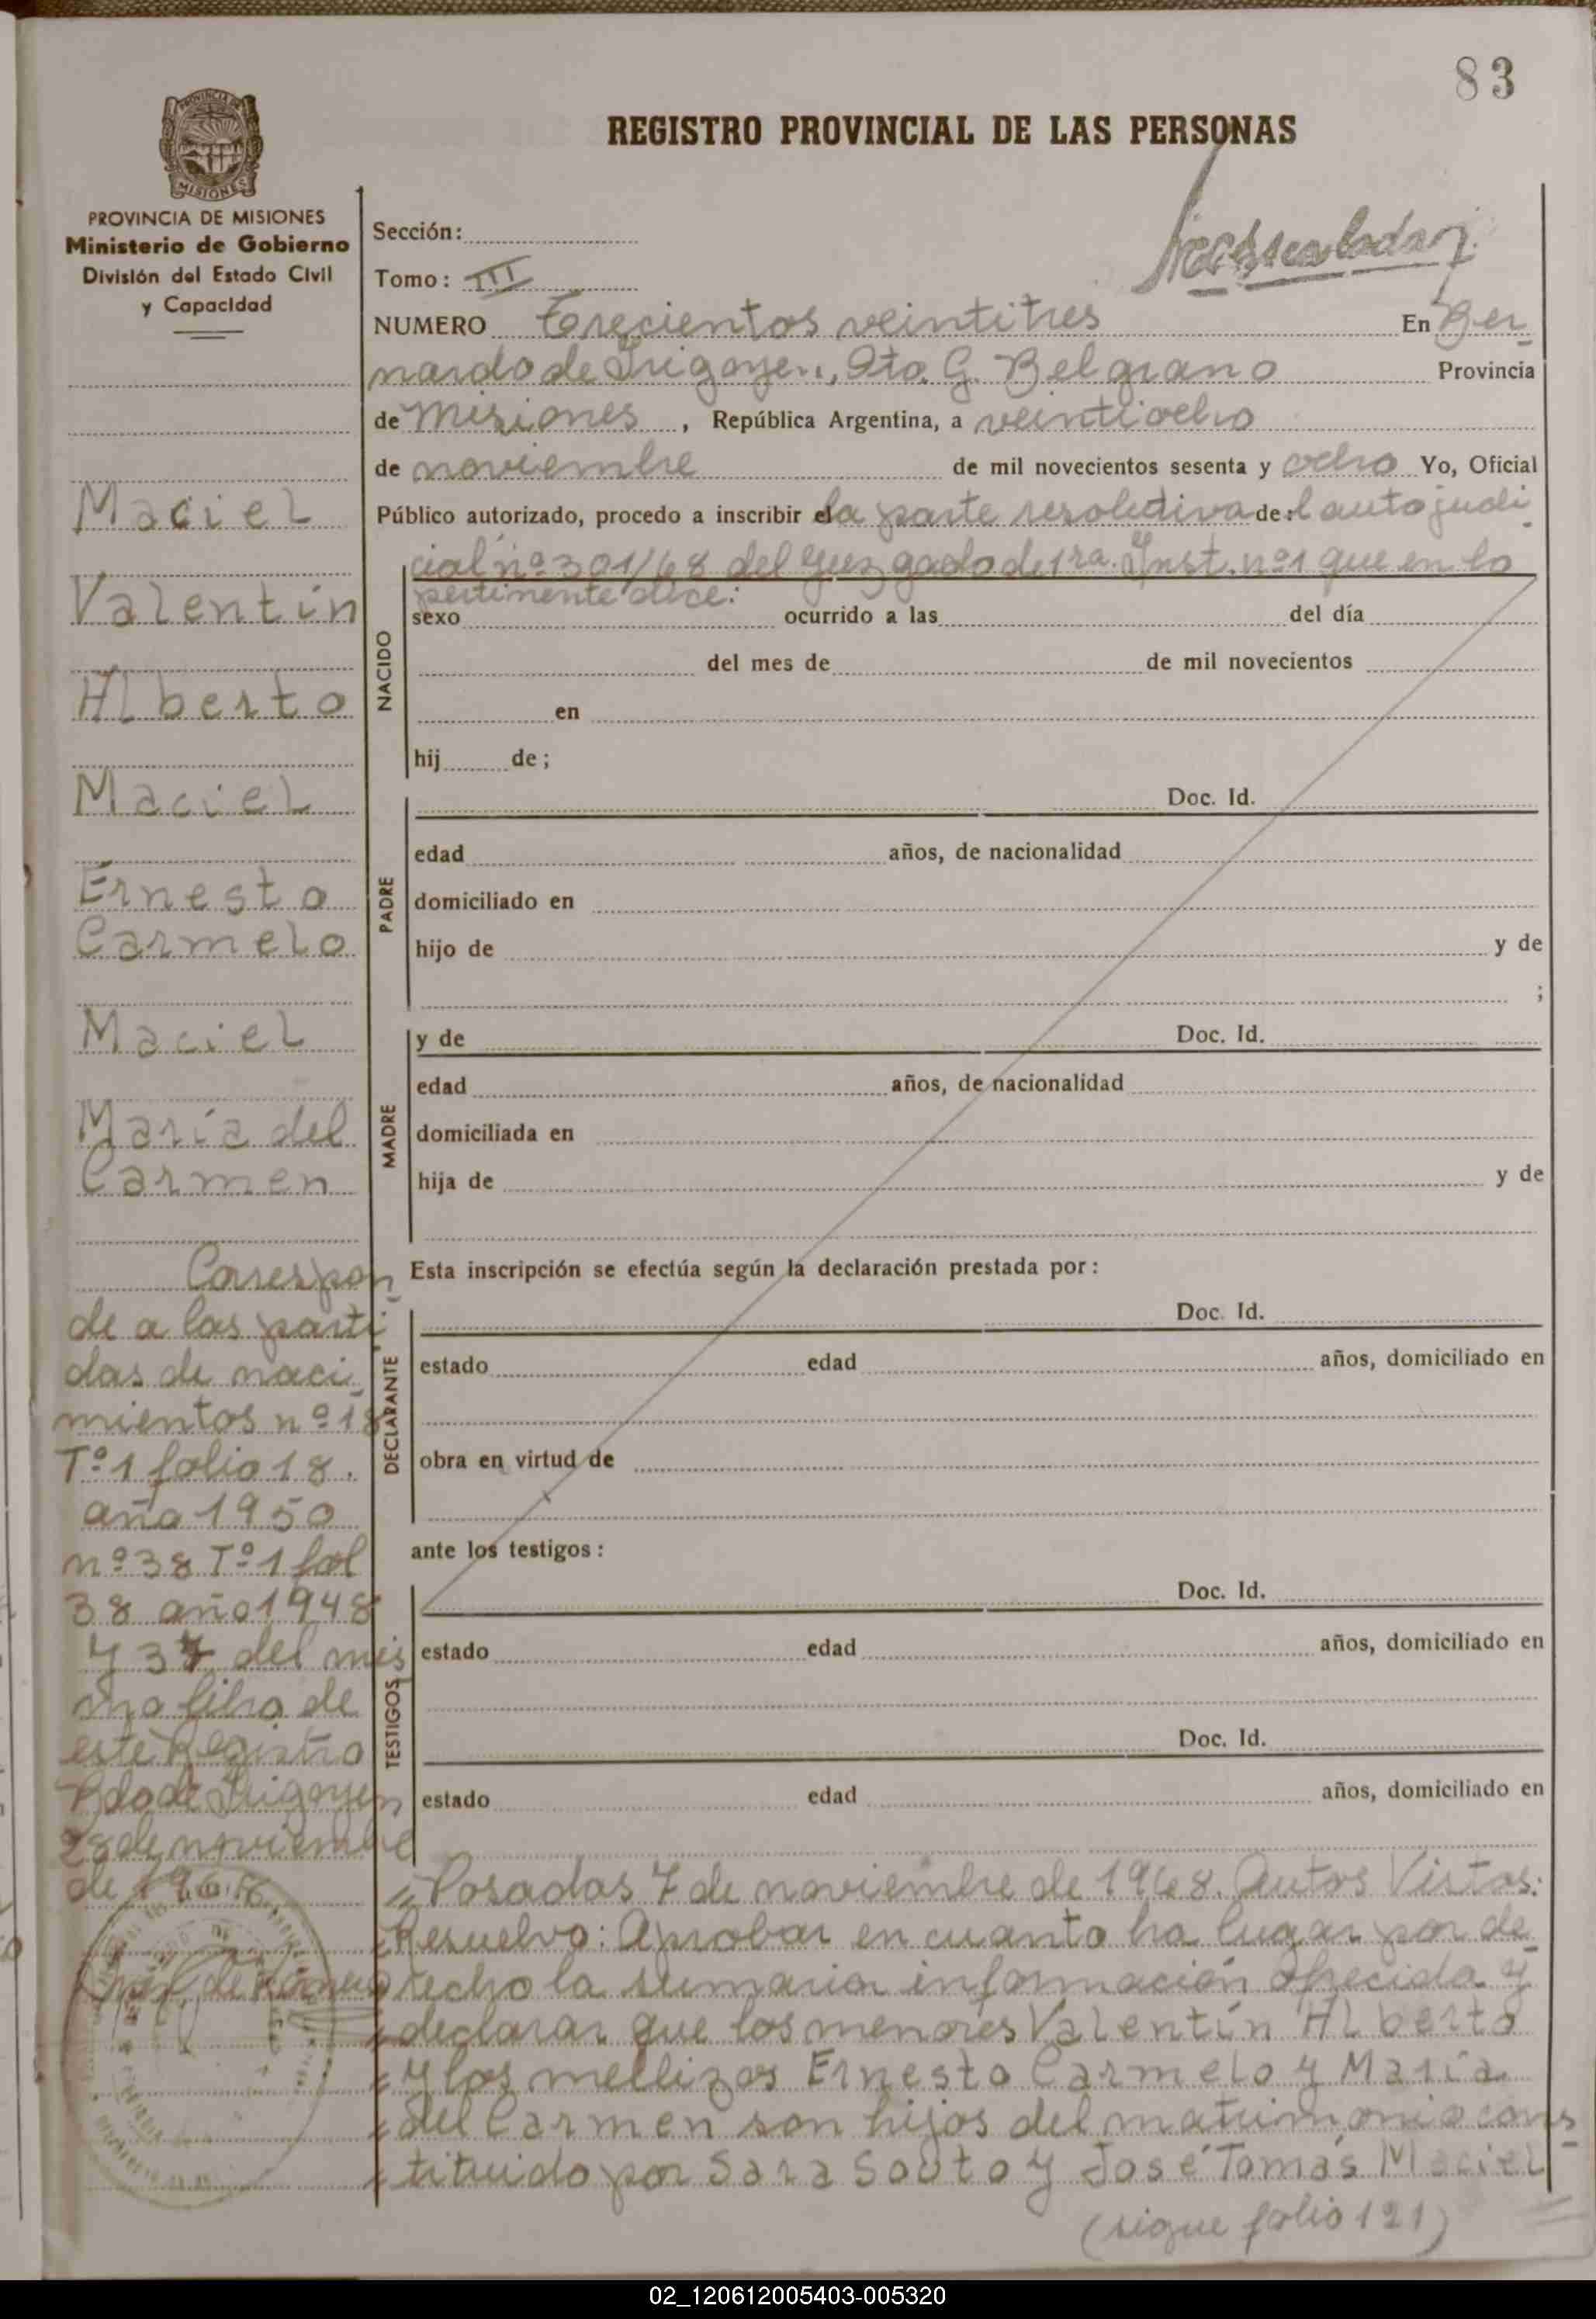 83
REGISTRO PROVINCIAL DE LAS PERSONAS
PROVINCIA DE MISIONES
MISIONES
PROVINCIA DE MISIONES
Ministerio de Gobierno
División del Estado Civil
y Capacidad
Maciel
Valentín
Alberto
Maciel
Ernesto
Carmelo
Maciel
María del
Carmen
Correspon
de a las parti
das de naci
mientos nº 18
Tº 1 folio 18.
año 1950
nº 38 Tº 1 fol
38 año 1948
y 37 del mis
mo libro de
este Registro
Bdo de Irigoyen
28 de noviembre
de 1968
Sección:
Tomo: III
NUMERO Trecientos veintitres En Ber
nardo de Irigoyen, Dto. G. Belgrano Provincia
de Misiones, República Argentina, a veintiocho
de noviembre de mil novecientos sesenta y ocho Yo, Oficial
Público autorizado, procedo a inscribir la parte resolutiva de:l auto judi
cial nº 301/68 del Juzgado de 1ra. Inst. nº 1 que en lo
pertinente dice:
NACIDO
sexo ocurrido a las del día
del mes de de mil novecientos
en
hij de;
PADRE
Doc. Id.
edad años, de nacionalidad
domiciliado en
hijo de y de
;
MADRE
y de Doc. Id.
edad años, de nacionalidad
domiciliada en
hija de y de
Esta inscripción se efectúa según la declaración prestada por:
DECLARANTE
Doc. Id.
estado edad años, domiciliado en
obra en virtud de
ante los testigos:
TESTIGOS
Doc. Id.
estado edad años, domiciliado en
Doc. Id.
estado edad años, domiciliado en
"Posadas 7 de noviembre de 1968. Autos Vistos:
Resuelvo: Aprobar en cuanto ha lugar por de
recho la sumaria información ofrecida y
declarar que los menores Valentín Alberto
y los mellizos Ernesto Carmelo y María
del Carmen son hijos del matrimonio cons
tituido por Sara Souto y José Tomás Maciel
(sigue folio 121)
02_120612005403-005320